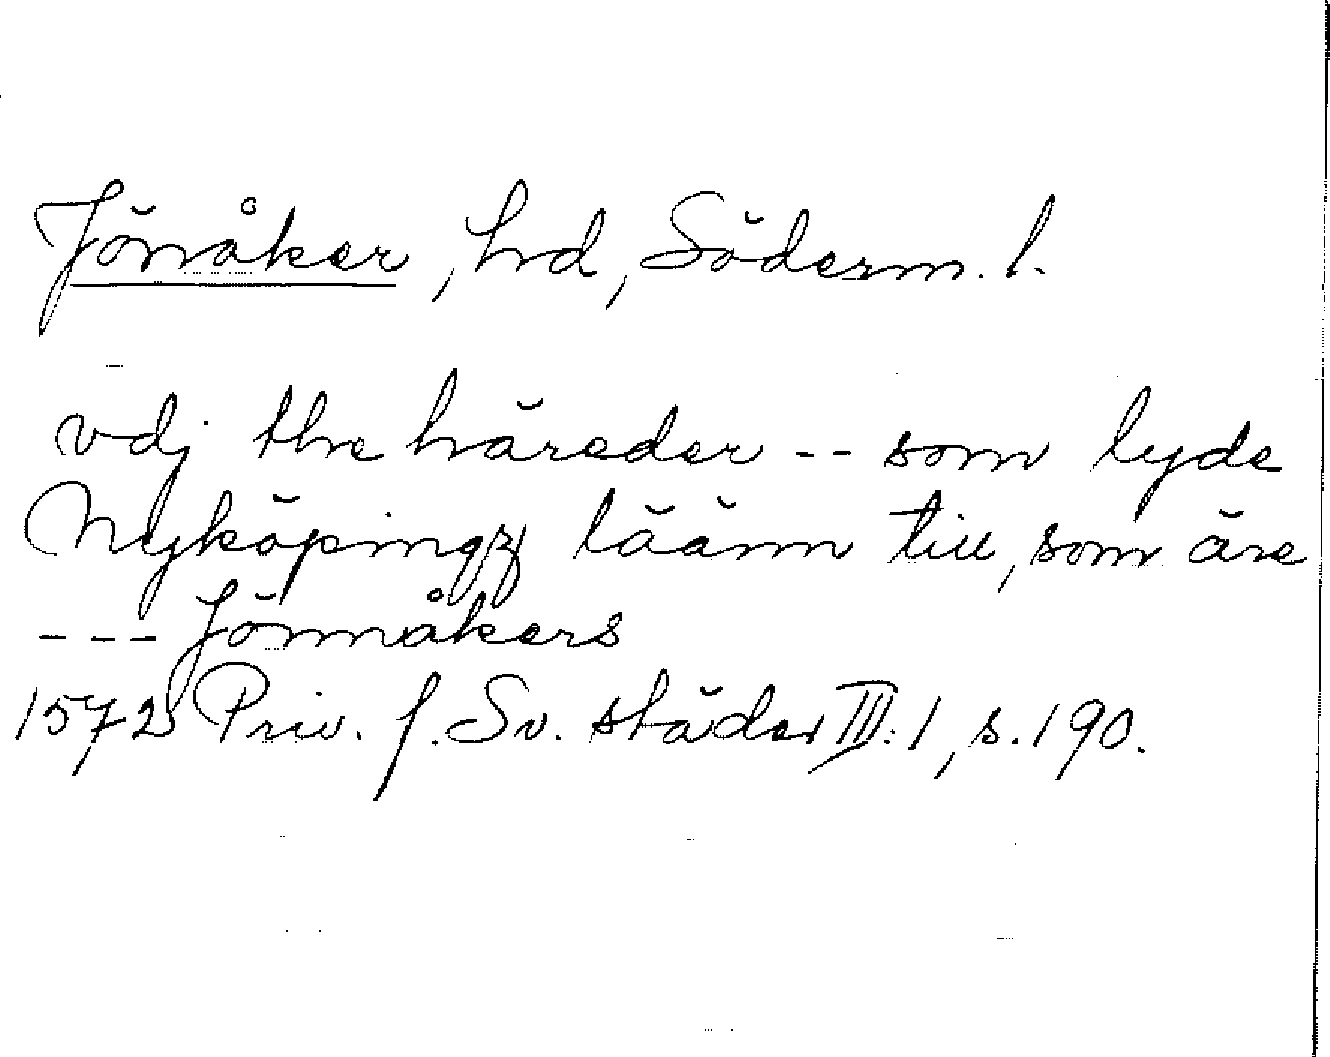 Jönåker, hd, Söderm. l.
vdj the häreder -- som lyde
Nyköpingz läänn till, som äre
--- Jönnåkers
1572 Priv. f. Sv. städer III:1, s. 190.